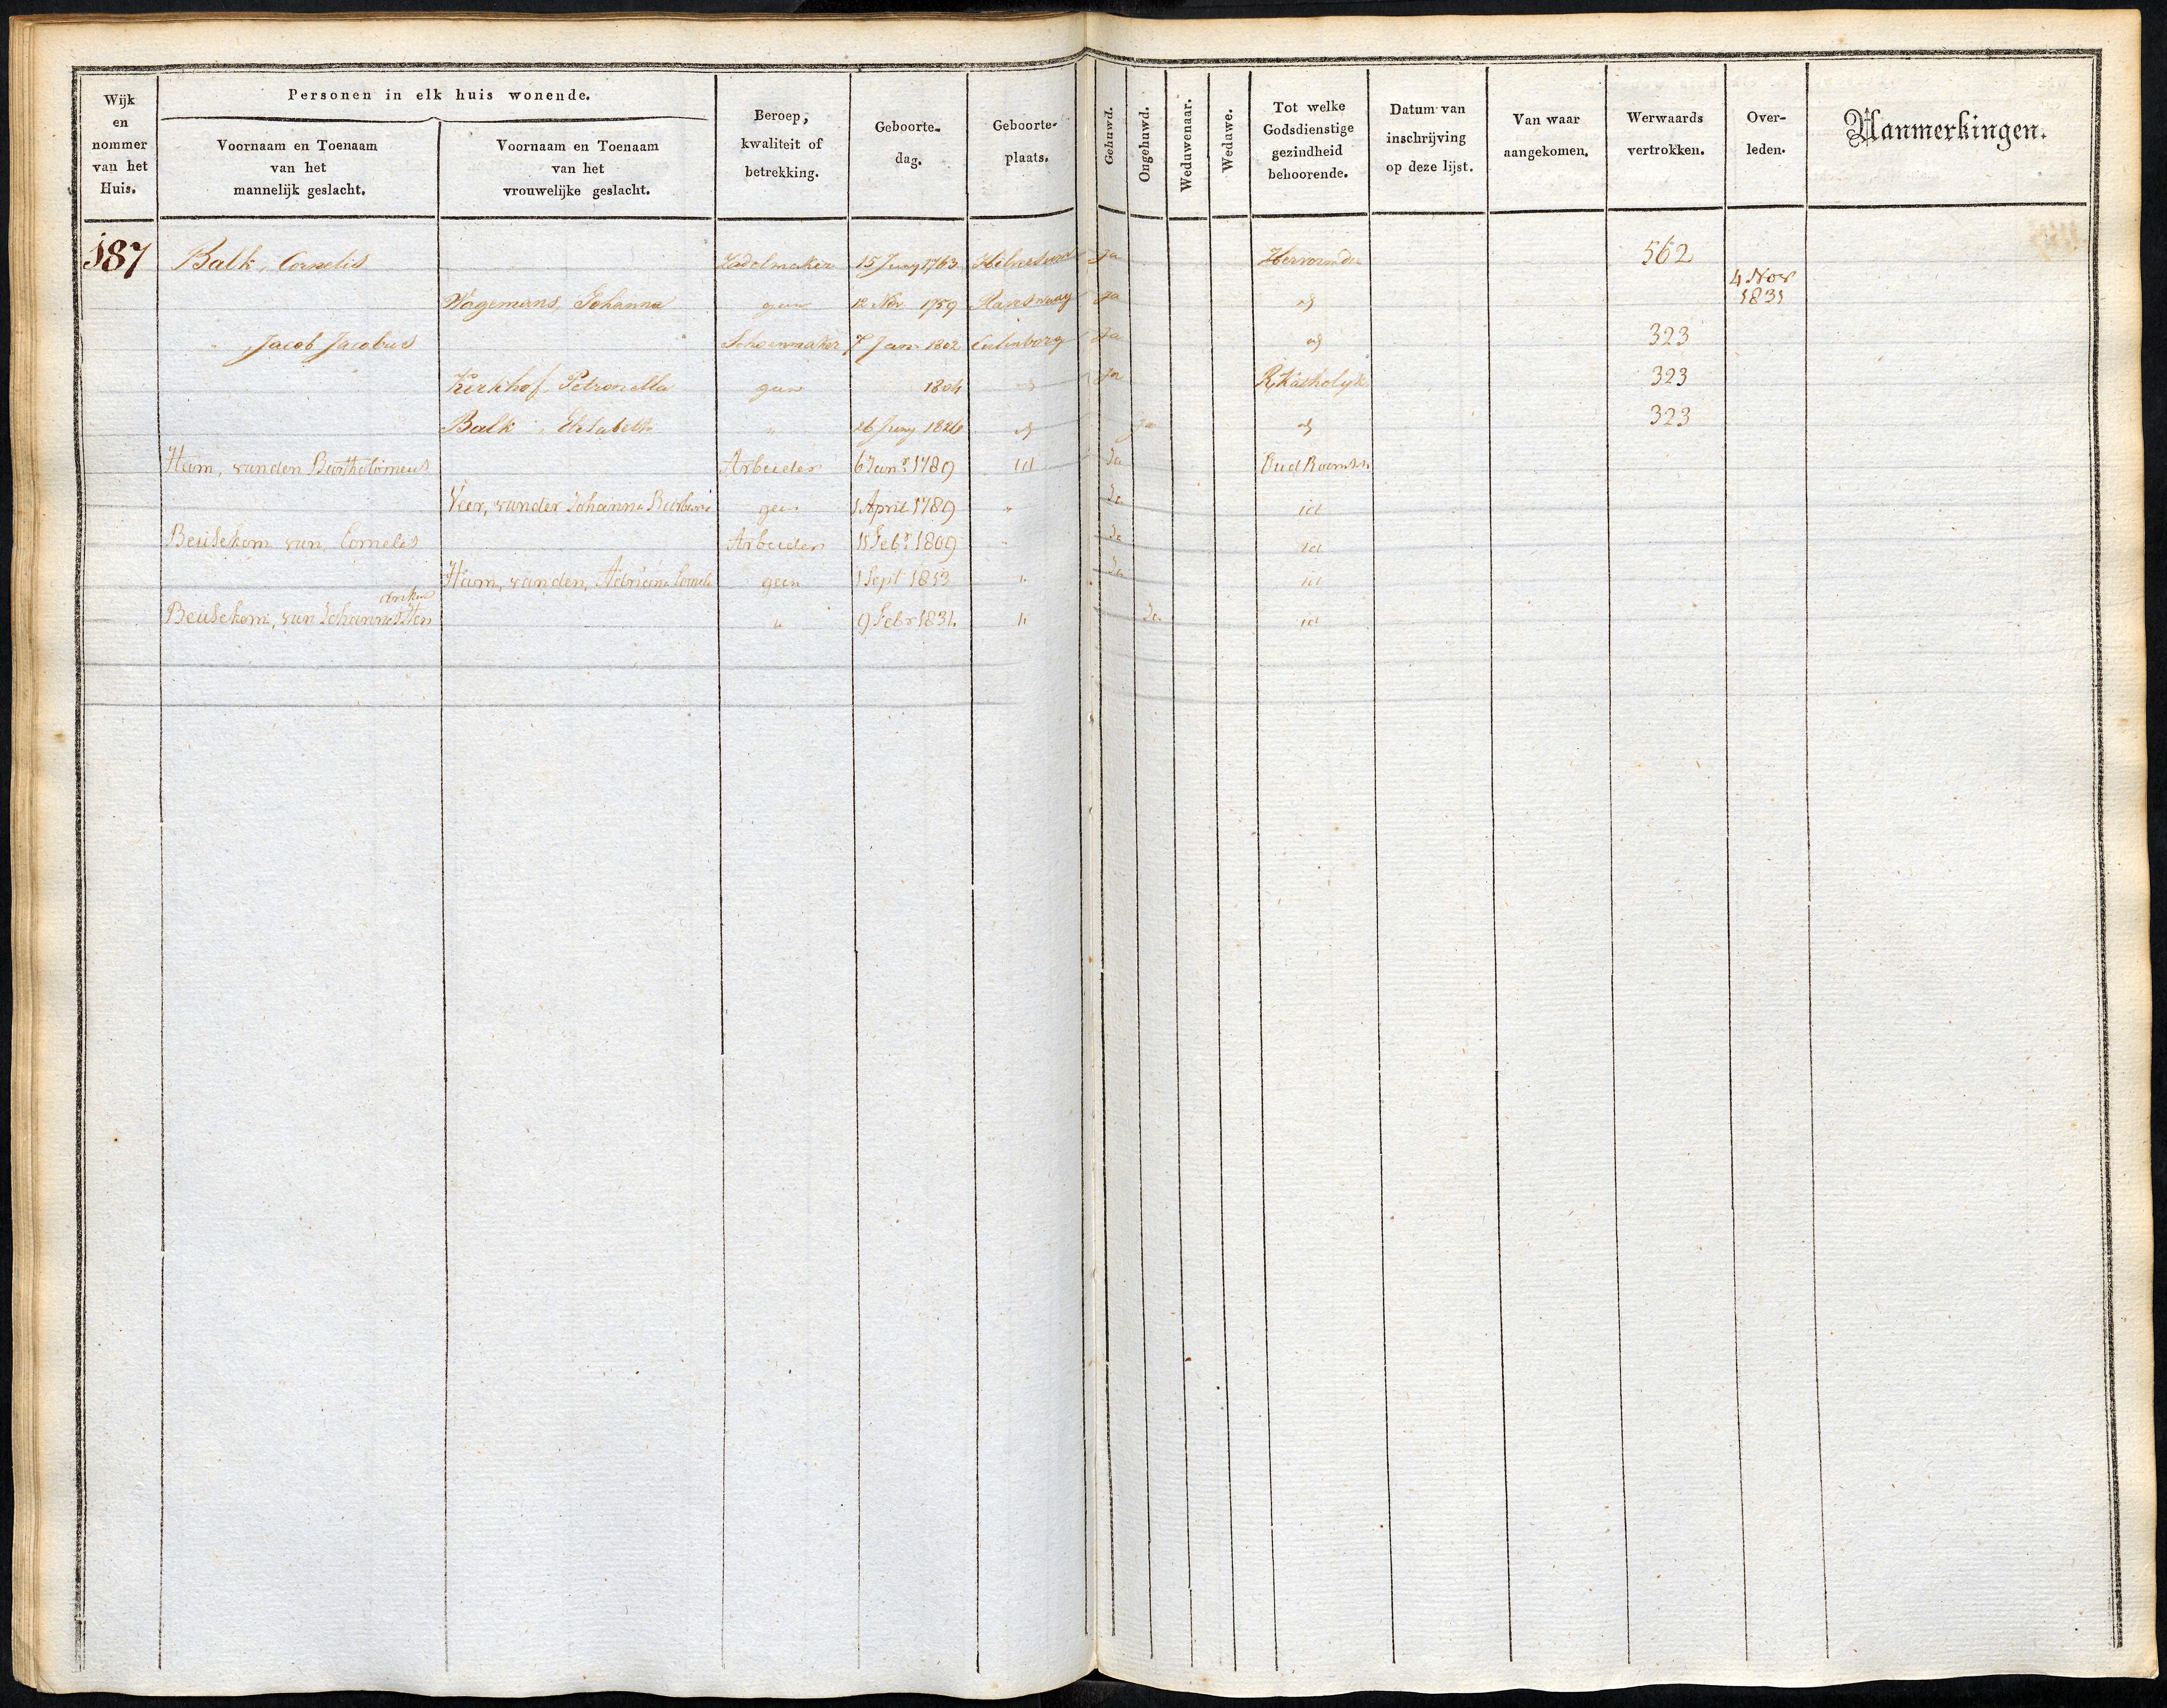 Wijk en nommer van het Huis.
Personen in elk huis wonende.
Voornaam en Toenaam van het mannelijk geslacht.
Voornaam en Toenaam van het vrouwelijke geslacht.
Beroep, kwaliteit of betrekking.
Geboorte- dag.
Geboorte- plaats.
Gehuwd.
Ongehuwd.
Weduwenaar.
Weduwe.
Tot welke Godsdienstige gezindheid behoorende.
Datum van inschrijving op deze lijst.
Van waar aangekomen.
Werwaards vertrokken.
Over- leden.
Aanmerkingen.
187 Balk, Cornelis Zadelmaker 15 Juny 1763 ja 562
Wagemans, Johanna geen 12 Nov 1759 ja id 4 Nov 1831
" , Jacob Jacobus Schoenmaker 7 Jan 1802 Culenborg ja id 323
Kerkhof, Petronella geen 1804 id ja R, Katholyk 323
Balk, Elisabeth " 26 Juny 1826 id ja id 323
Ham, van den Bartholomeus Arbeider 6 Janr 1789 id Ja Oud Roomsch
Veer, van der Johanna geen 1 April 1789 " Ja id
Beusekom van, Cornelis Arbeider 15 Febr 1809 " Ja id
Ham, van den, Adriana geen 1 Sept 1813 " Ja id
Beusekom, van Johannes Hendrikus " 9 Febr 1831 " Ja id